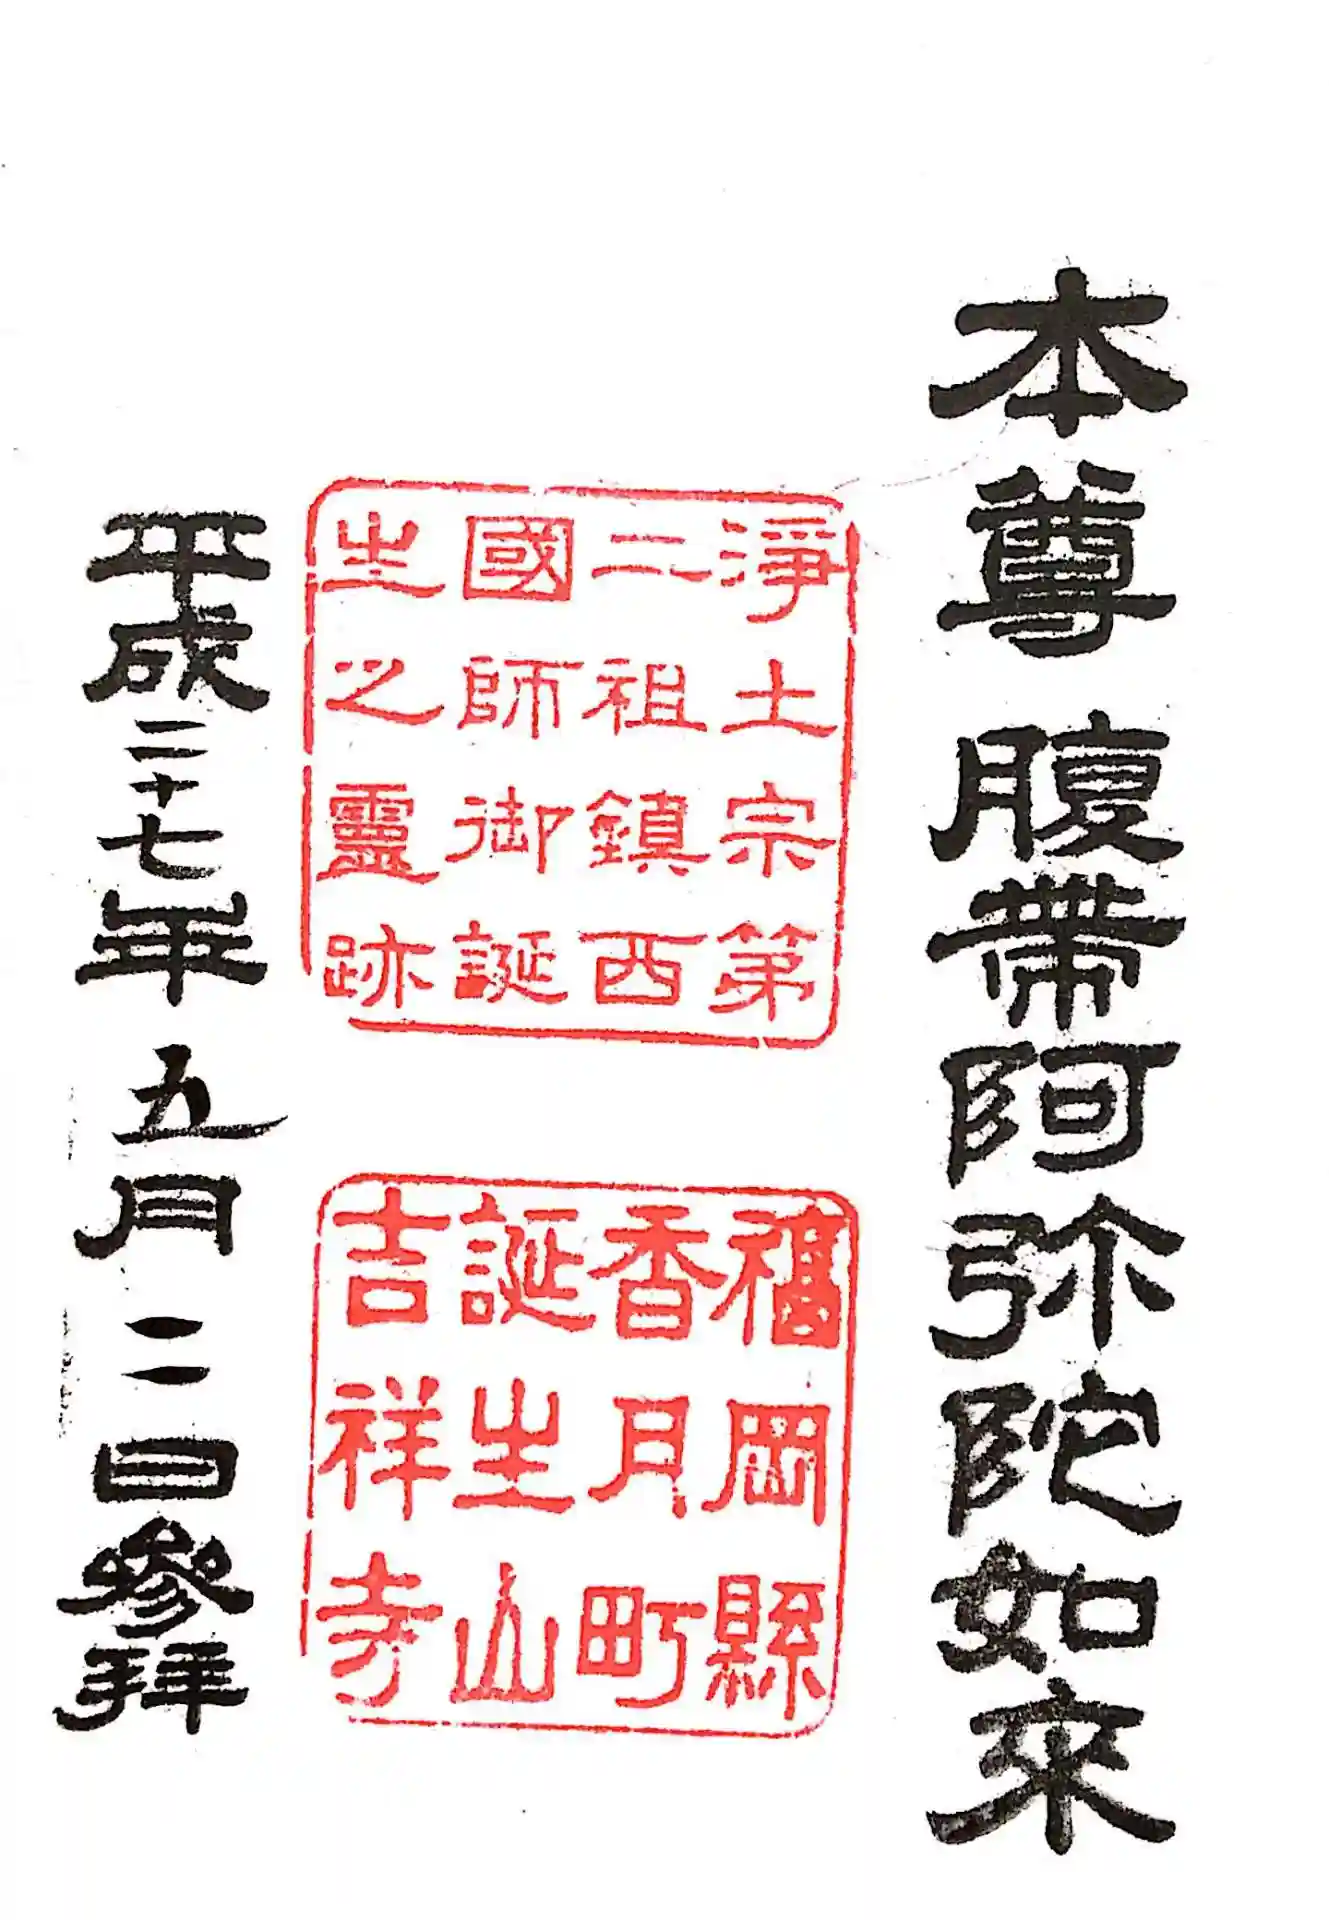 本尊 腹帶阿弥陀如來
淨土宗第
二祖鎮西
國師御誕
生之靈跡
福岡縣
香月町
誕生山
吉祥寺
平成二十七年 五月 二日參拜